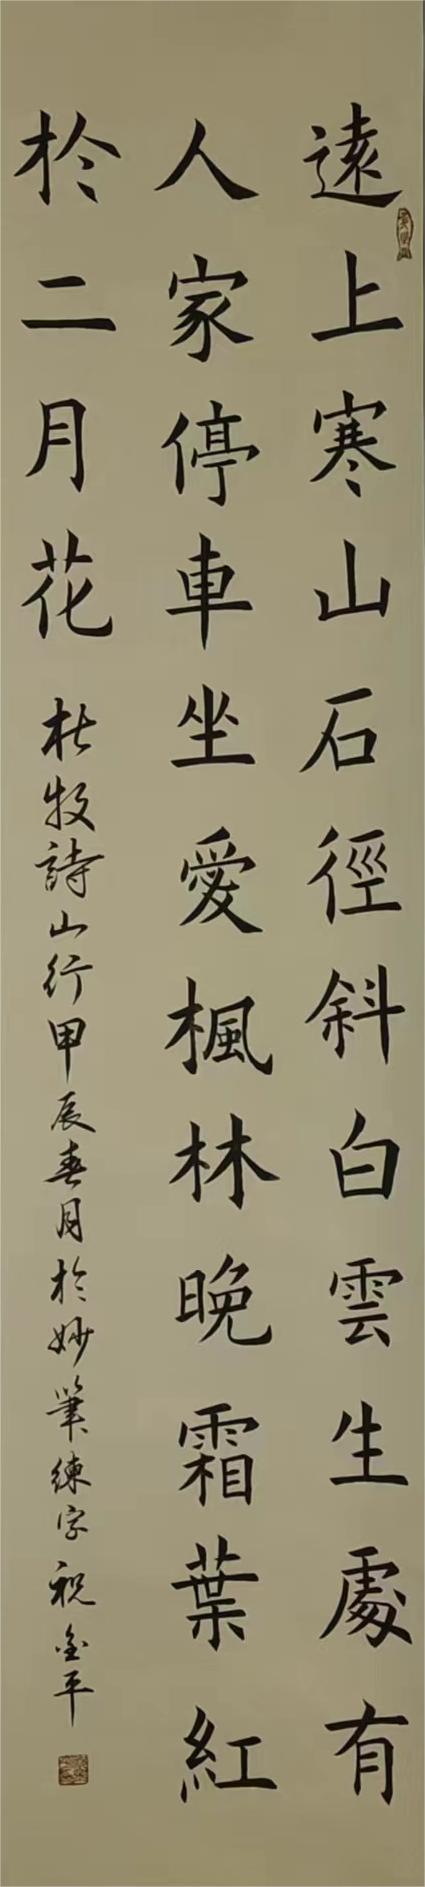 遠上寒山石徑斜白雲生處有
人家停車坐愛楓林晚霜葉紅
於二月花
杜牧詩山行甲辰春月於妙筆練字祝金平